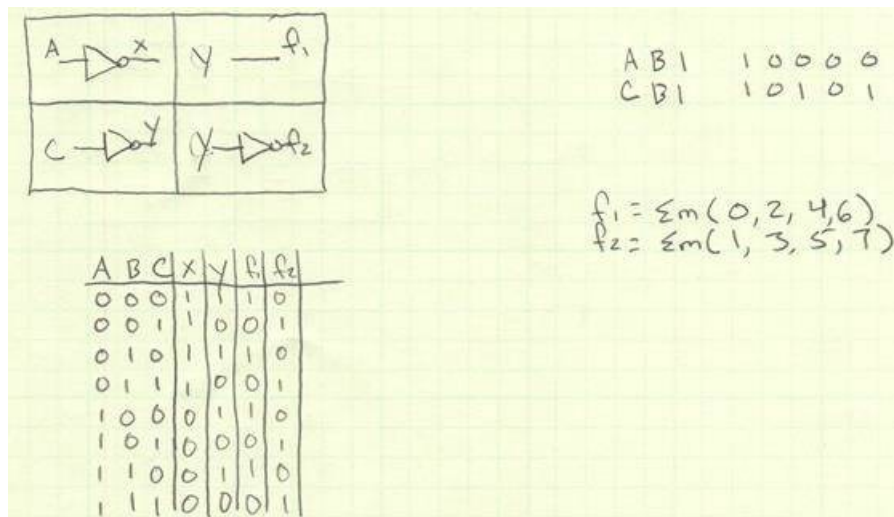 A X Y f₁
C Y Y f₂
A B 1 1 0 0 0 0
C B 1 1 0 1 0 1
f₁ = Σm(0, 2, 4, 6)
f₂ = Σm(1, 3, 5, 7)
A B C X Y f₁ f₂
0 0 0 1 1 1 0
0 0 1 1 0 0 1
0 1 0 1 1 1 0
0 1 1 1 0 0 1
1 0 0 0 1 1 0
1 0 1 0 0 0 1
1 1 0 0 1 1 0
1 1 1 0 0 0 1